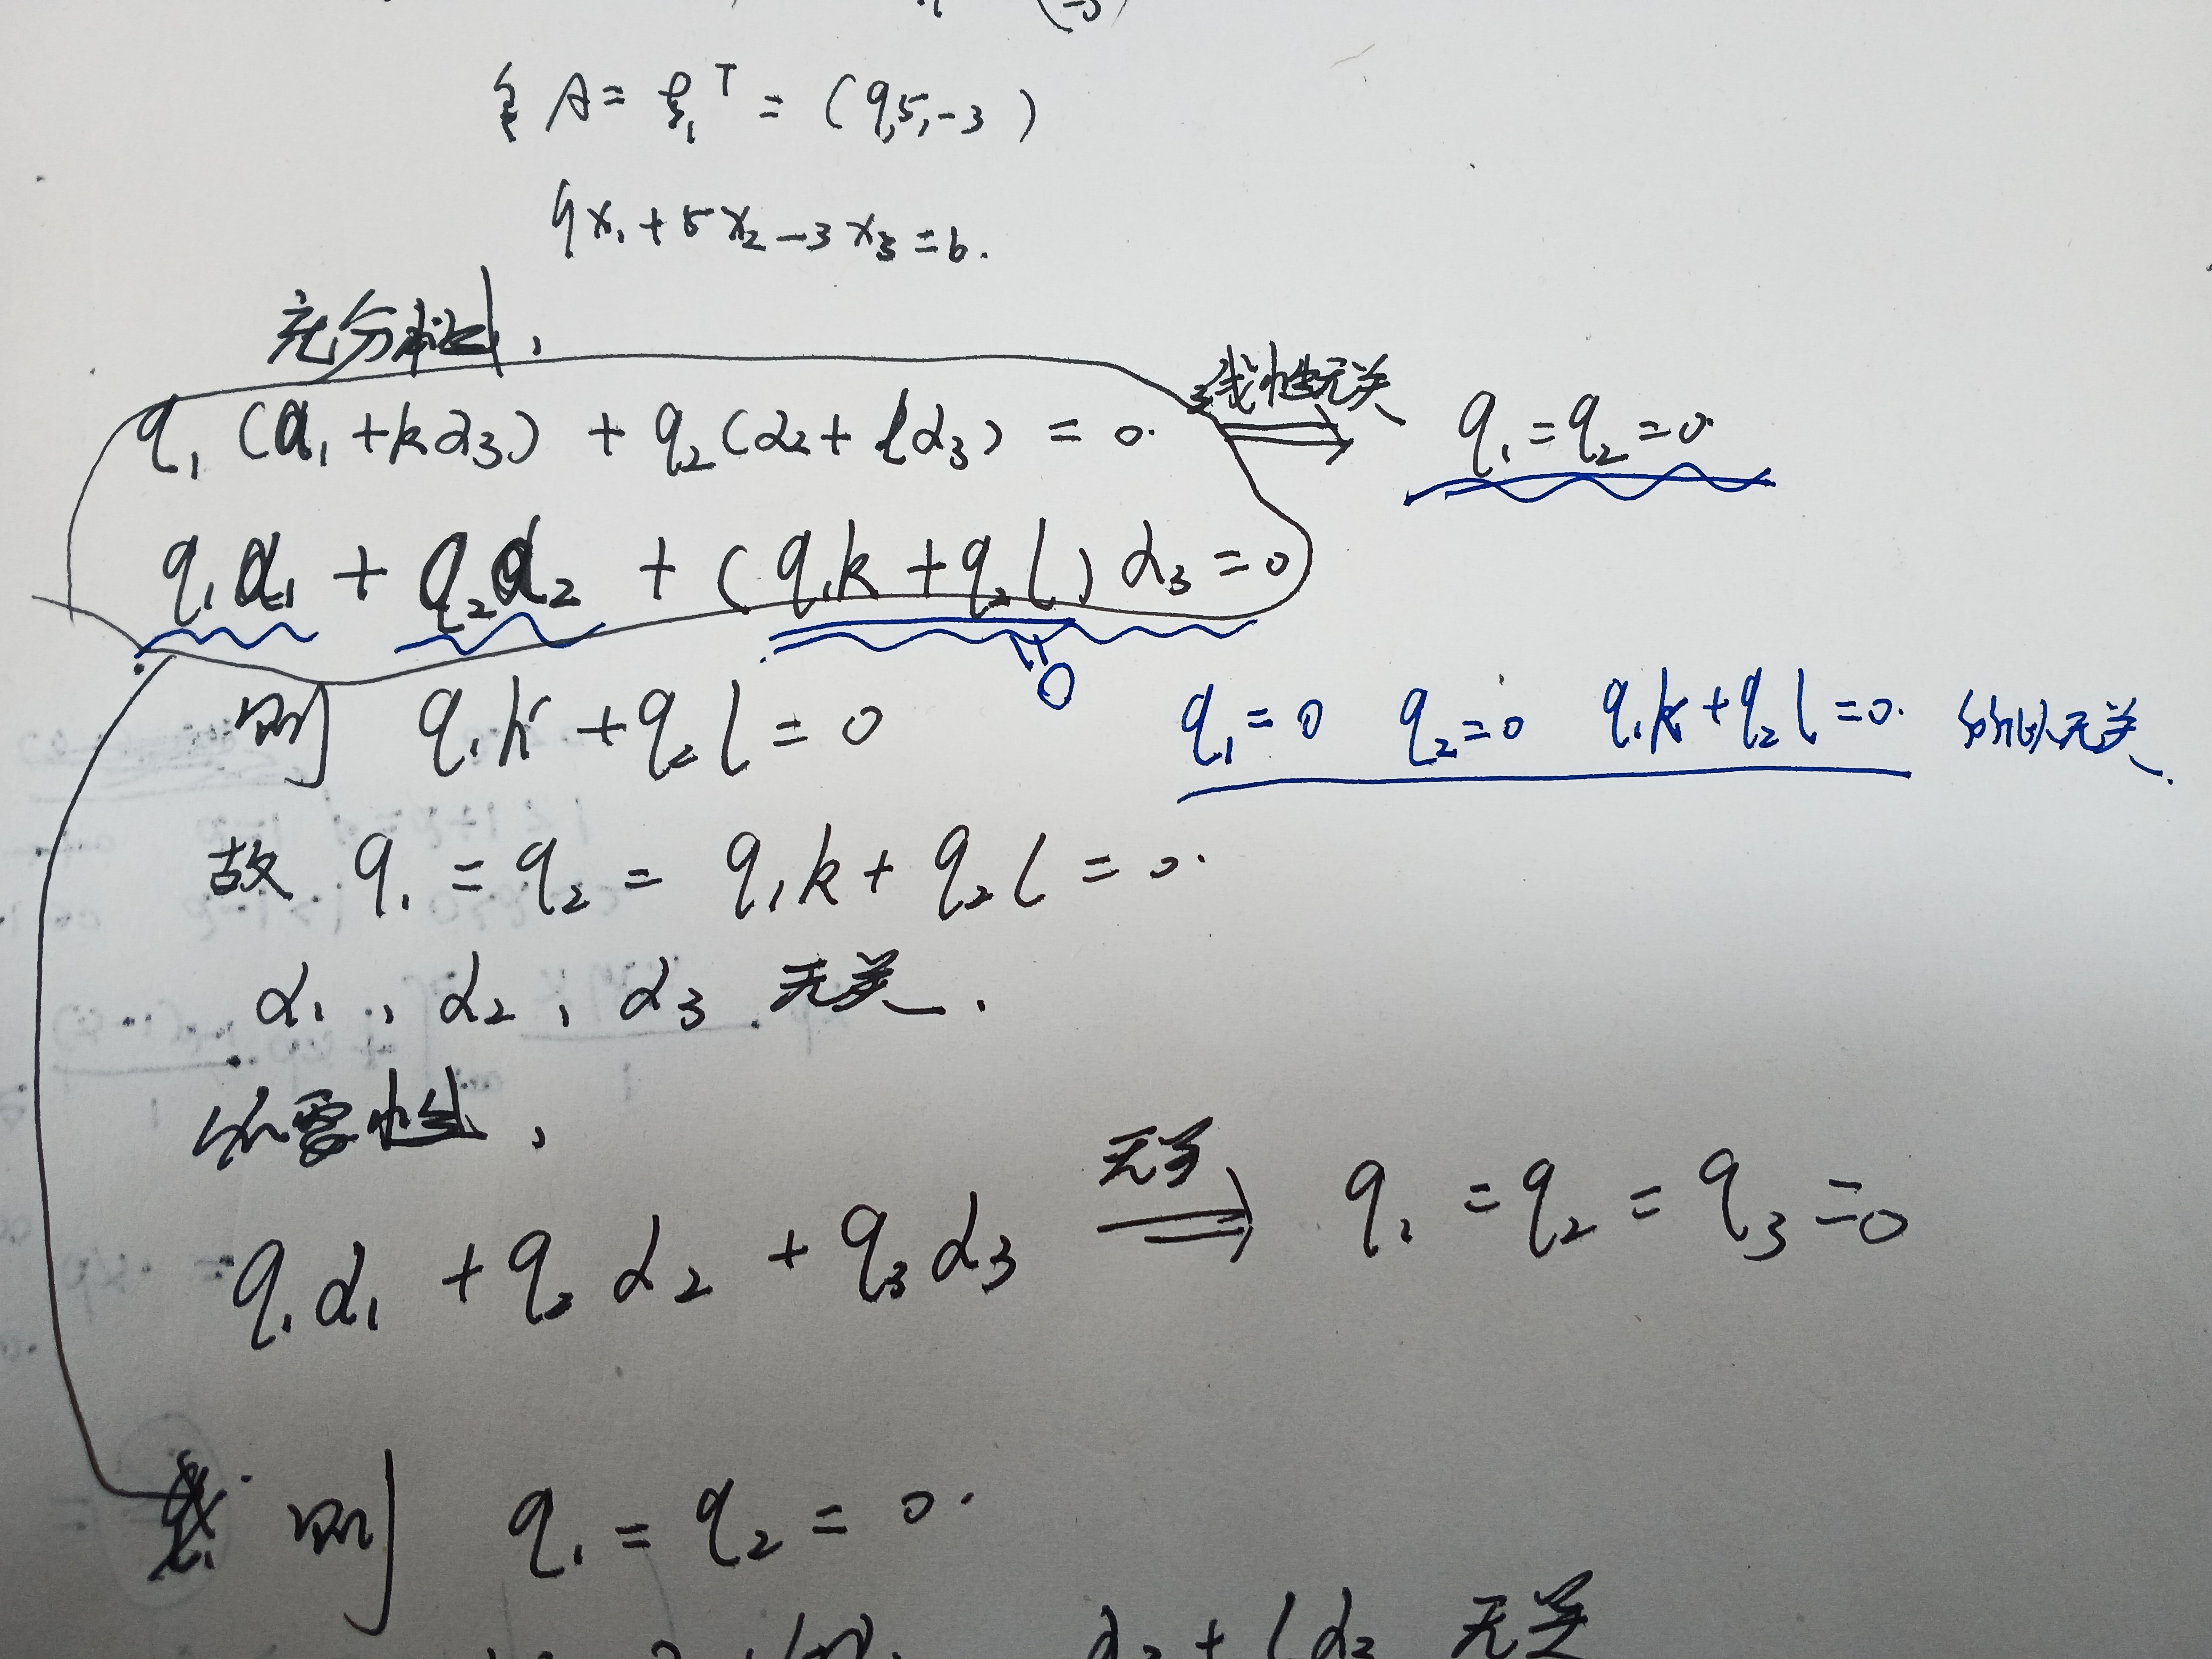 A = ξ₁ᵀ = (9,5,-3)
9x₁+5x₂-3x₃=b.
充分性,
q₁(α₁+kα₃) + q₂(α₂+lα₃) = 0. 线性无关 ⟹ q₁=q₂=0.
q₁α₁ + q₂α₂ + (q₁k+q₂l)α₃=0
0
则 q₁k+q₂l=0
q₁=0 q₂=0 q₁k+q₂l=0. 无关.
故 q₁=q₂= q₁k+q₂l=0.
α₁, α₂, α₃ 无关.
必要性,
q₁α₁+q₂α₂+q₃α₃ 无关 ⟹ q₁=q₂=q₃=0
则 q₁=q₂=0.
α₂+lα₃ 无关